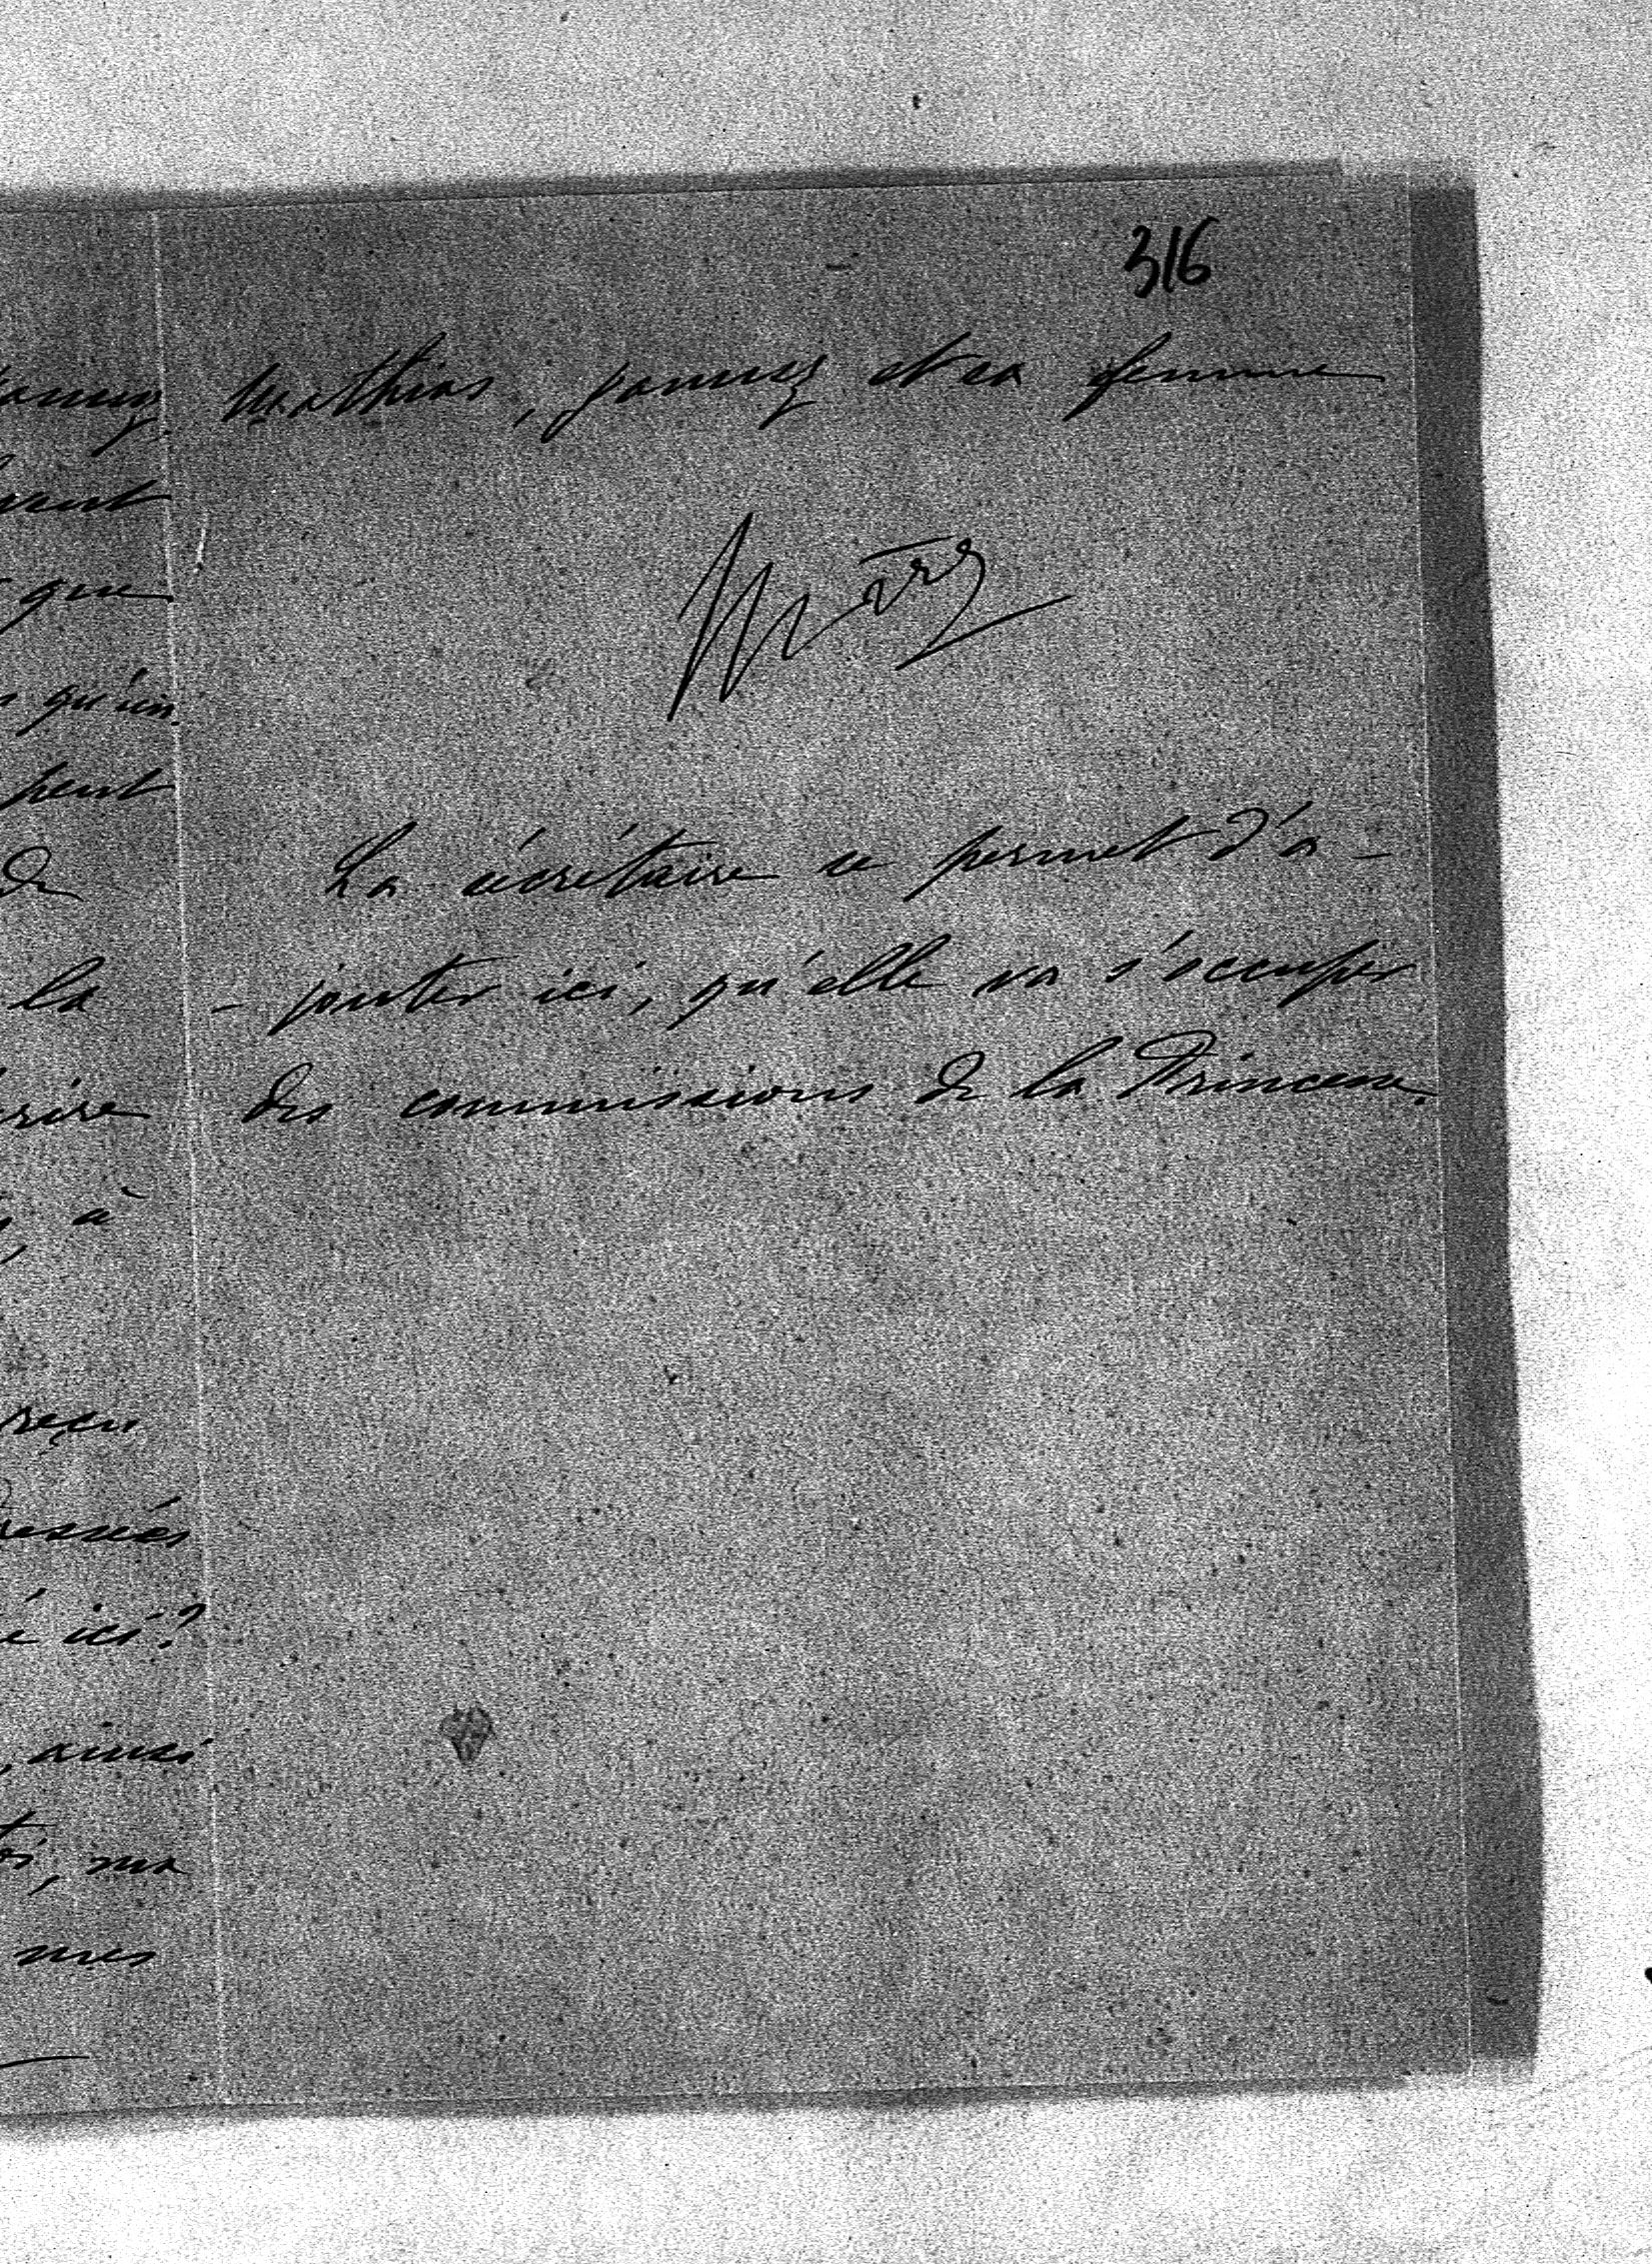 316
Mathias, Janusz et sa femme
La sécrétaire se permet d'a-
- jouter ici, qu'elle va s'occuper
des commissions de la Princesse.
que
qu'un
peut
de
la
à
reçu
ici?
, ainsi
, ma
mes